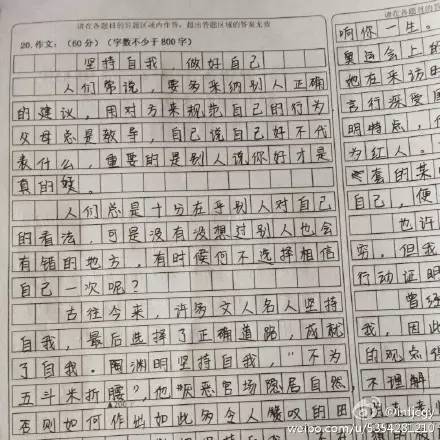 请在各题目的答题区域内作答,超出答题区域的答案无效
20.作文:(60分)(字数不少于800字)
坚持自我 做好自己
人们常说,要多采纳别人正确
的建议,用对方来规范自己的行为
父母总是教导,自己说自己好不代
表什么,重要的是别人说你好才是
真的好。
人们总是十分在乎别人对自己
的看法,可是没有没想过别人也会
有错的地方,有时候何不选择相信
自己一次呢?
古往今来,许多文人名人坚持
自我,最后选择了正确道路,成就
了自我。陶渊明坚持自我,"不为
五斗米折腰",他厌恶官场隐居自然,
否则如何作出如此多令人 叹的田
请在各题目的
响你一生。
奥运会上的
她在采访时
言行深受
明特点,
为红人。
套的某
自己,便
也许
穷,但我
行动证明
曾经
我,因此
的观点
不理解
@inficgy
weibo.com/u/5354281210